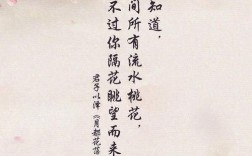 知道，
间所有流水桃花，
不过你隔花眺望而来
君子以泽《月都花落